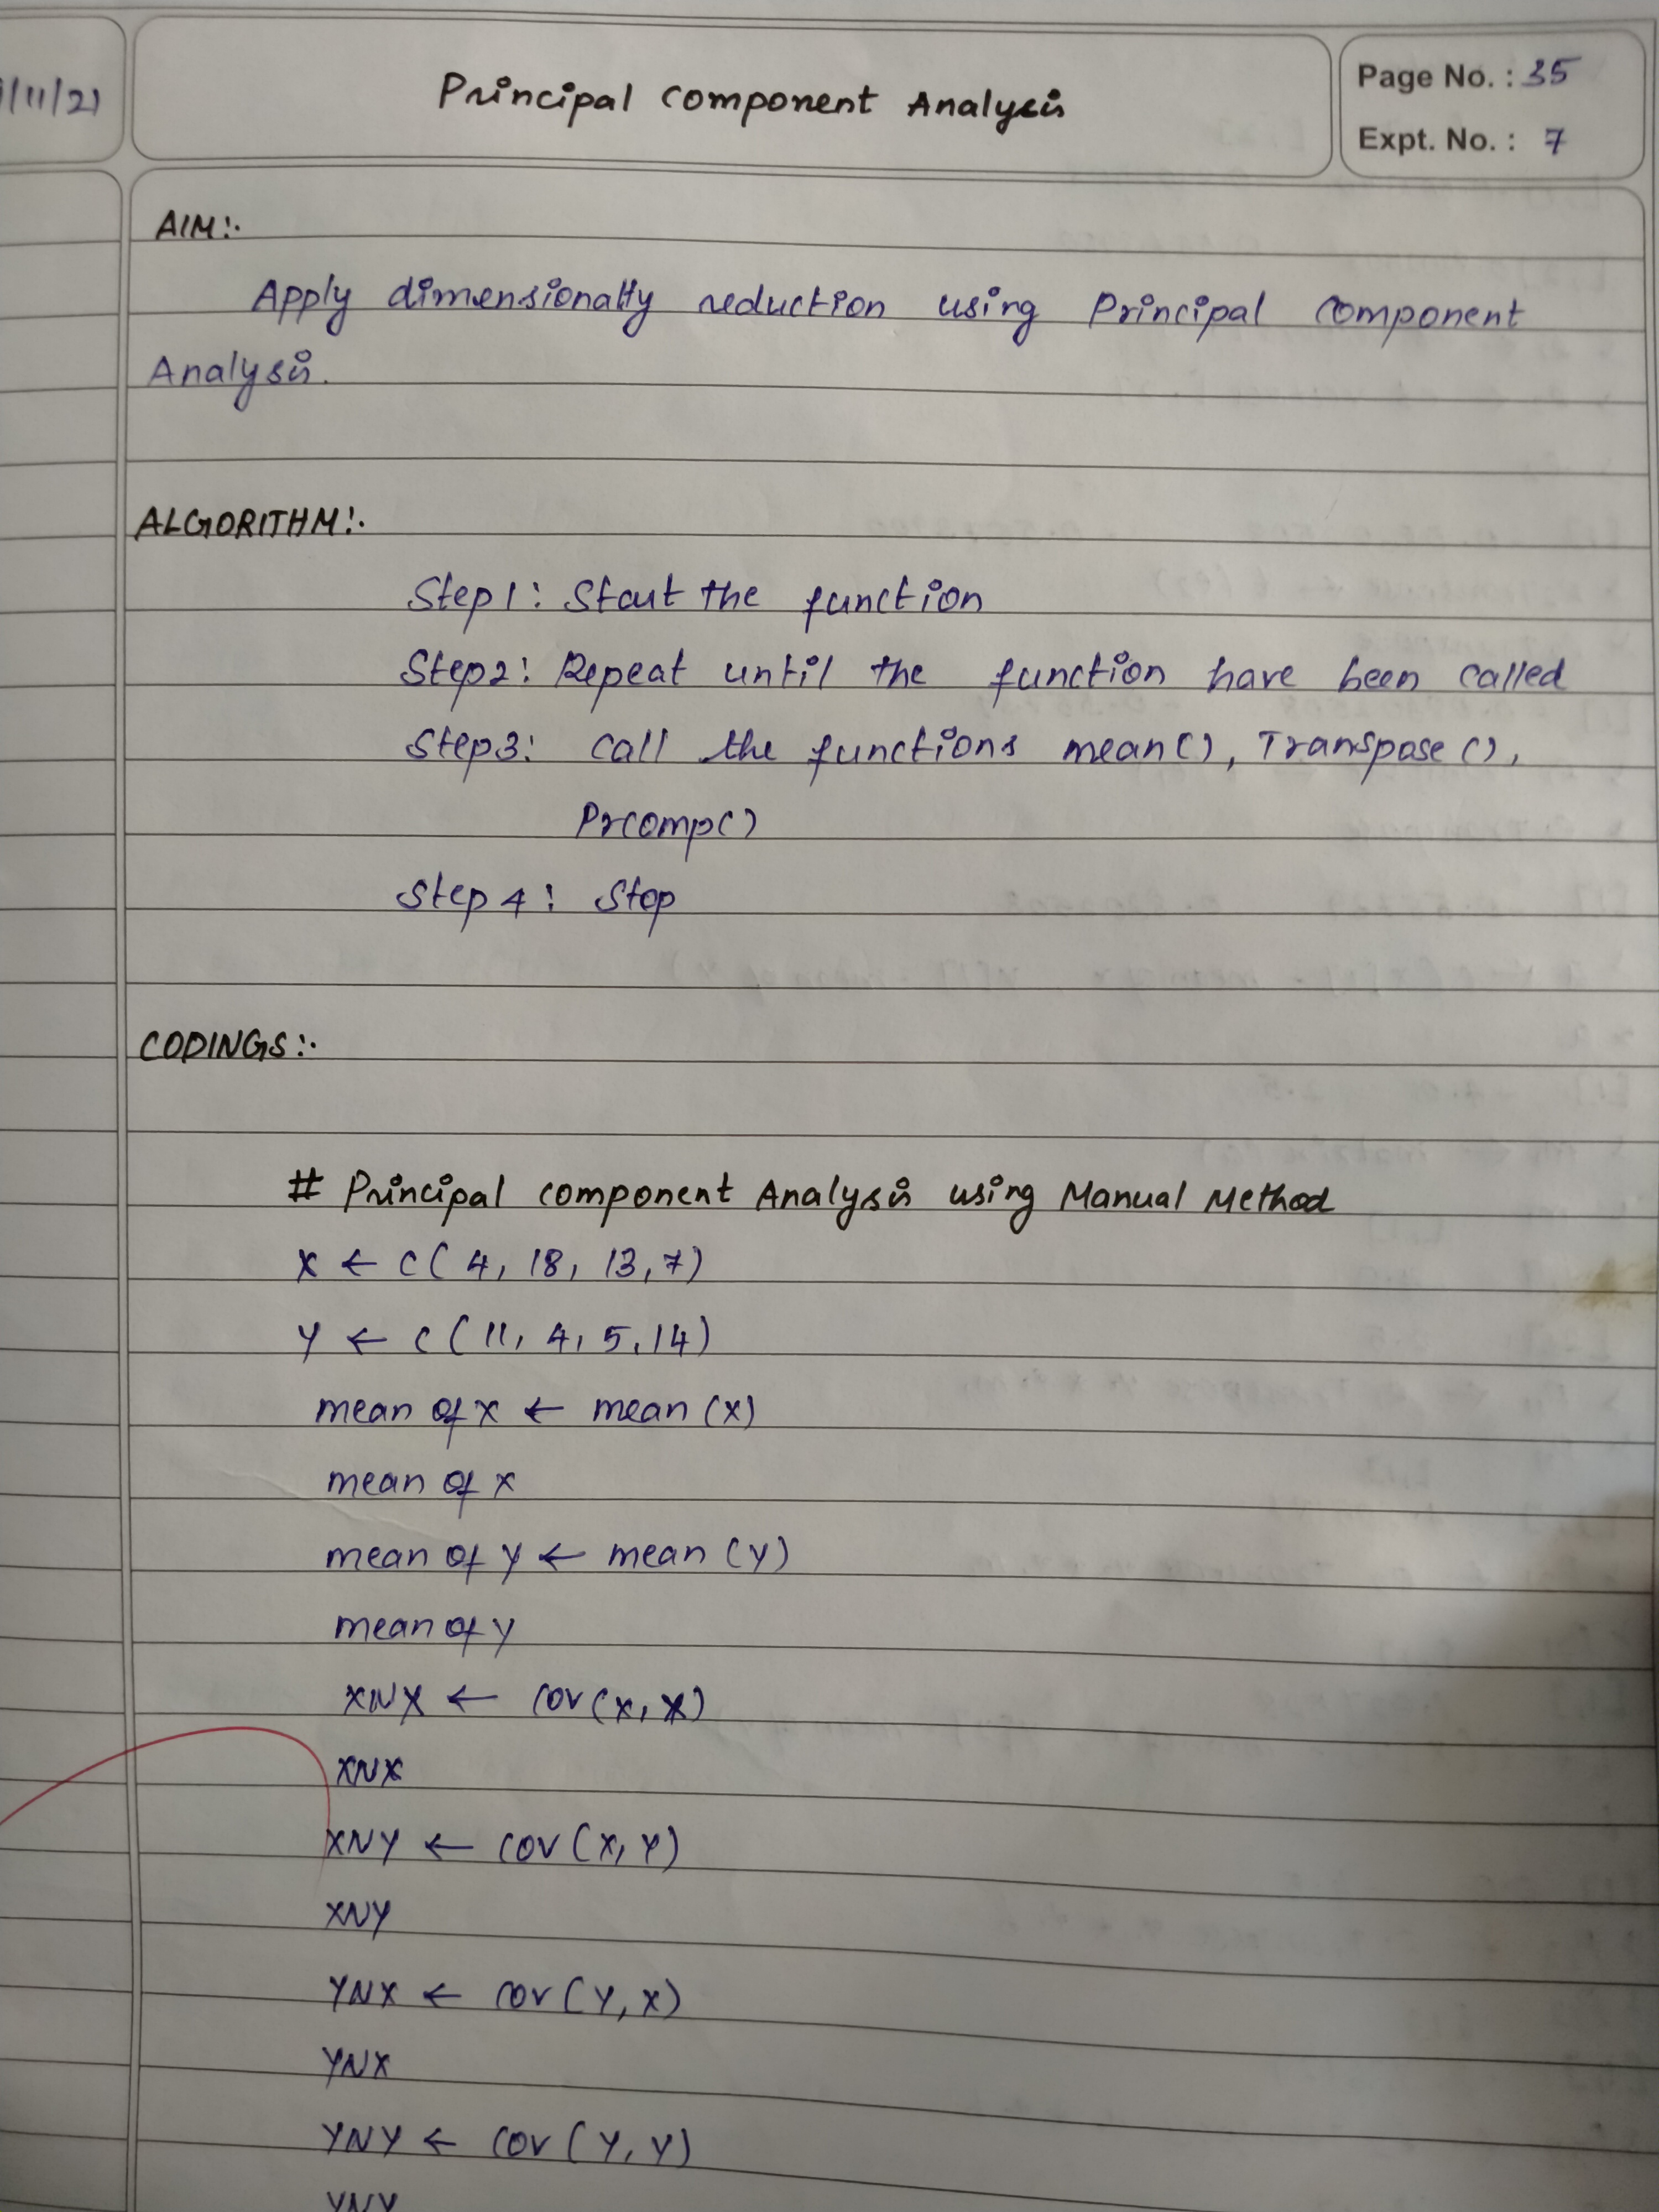 /11/21
Principal component Analysis
Page No. : 35
Expt. No. : 7
AIM:.
Apply dimensionalty reduction using Principal component
Analysis.
ALGORITHM:.
Step1: Start the function
Step2: Repeat until the function have been called
Step3: call the functions mean(), Transpose(),
Prcomp()
Step 4: Stop
CODINGS:.
# Principal component Analysis using Manual Method
x ← c( 4, 18, 13, 7)
y ← c( 11, 4, 5, 14)
mean of x ← mean (x)
mean of x
mean of y ← mean (y)
mean of y
XNX ← cov(x, x)
XNX
XNY ← cov (x, y)
XNY
YNX ← cov (y, x)
YNX
YNY ← cov (y, y)
YNY